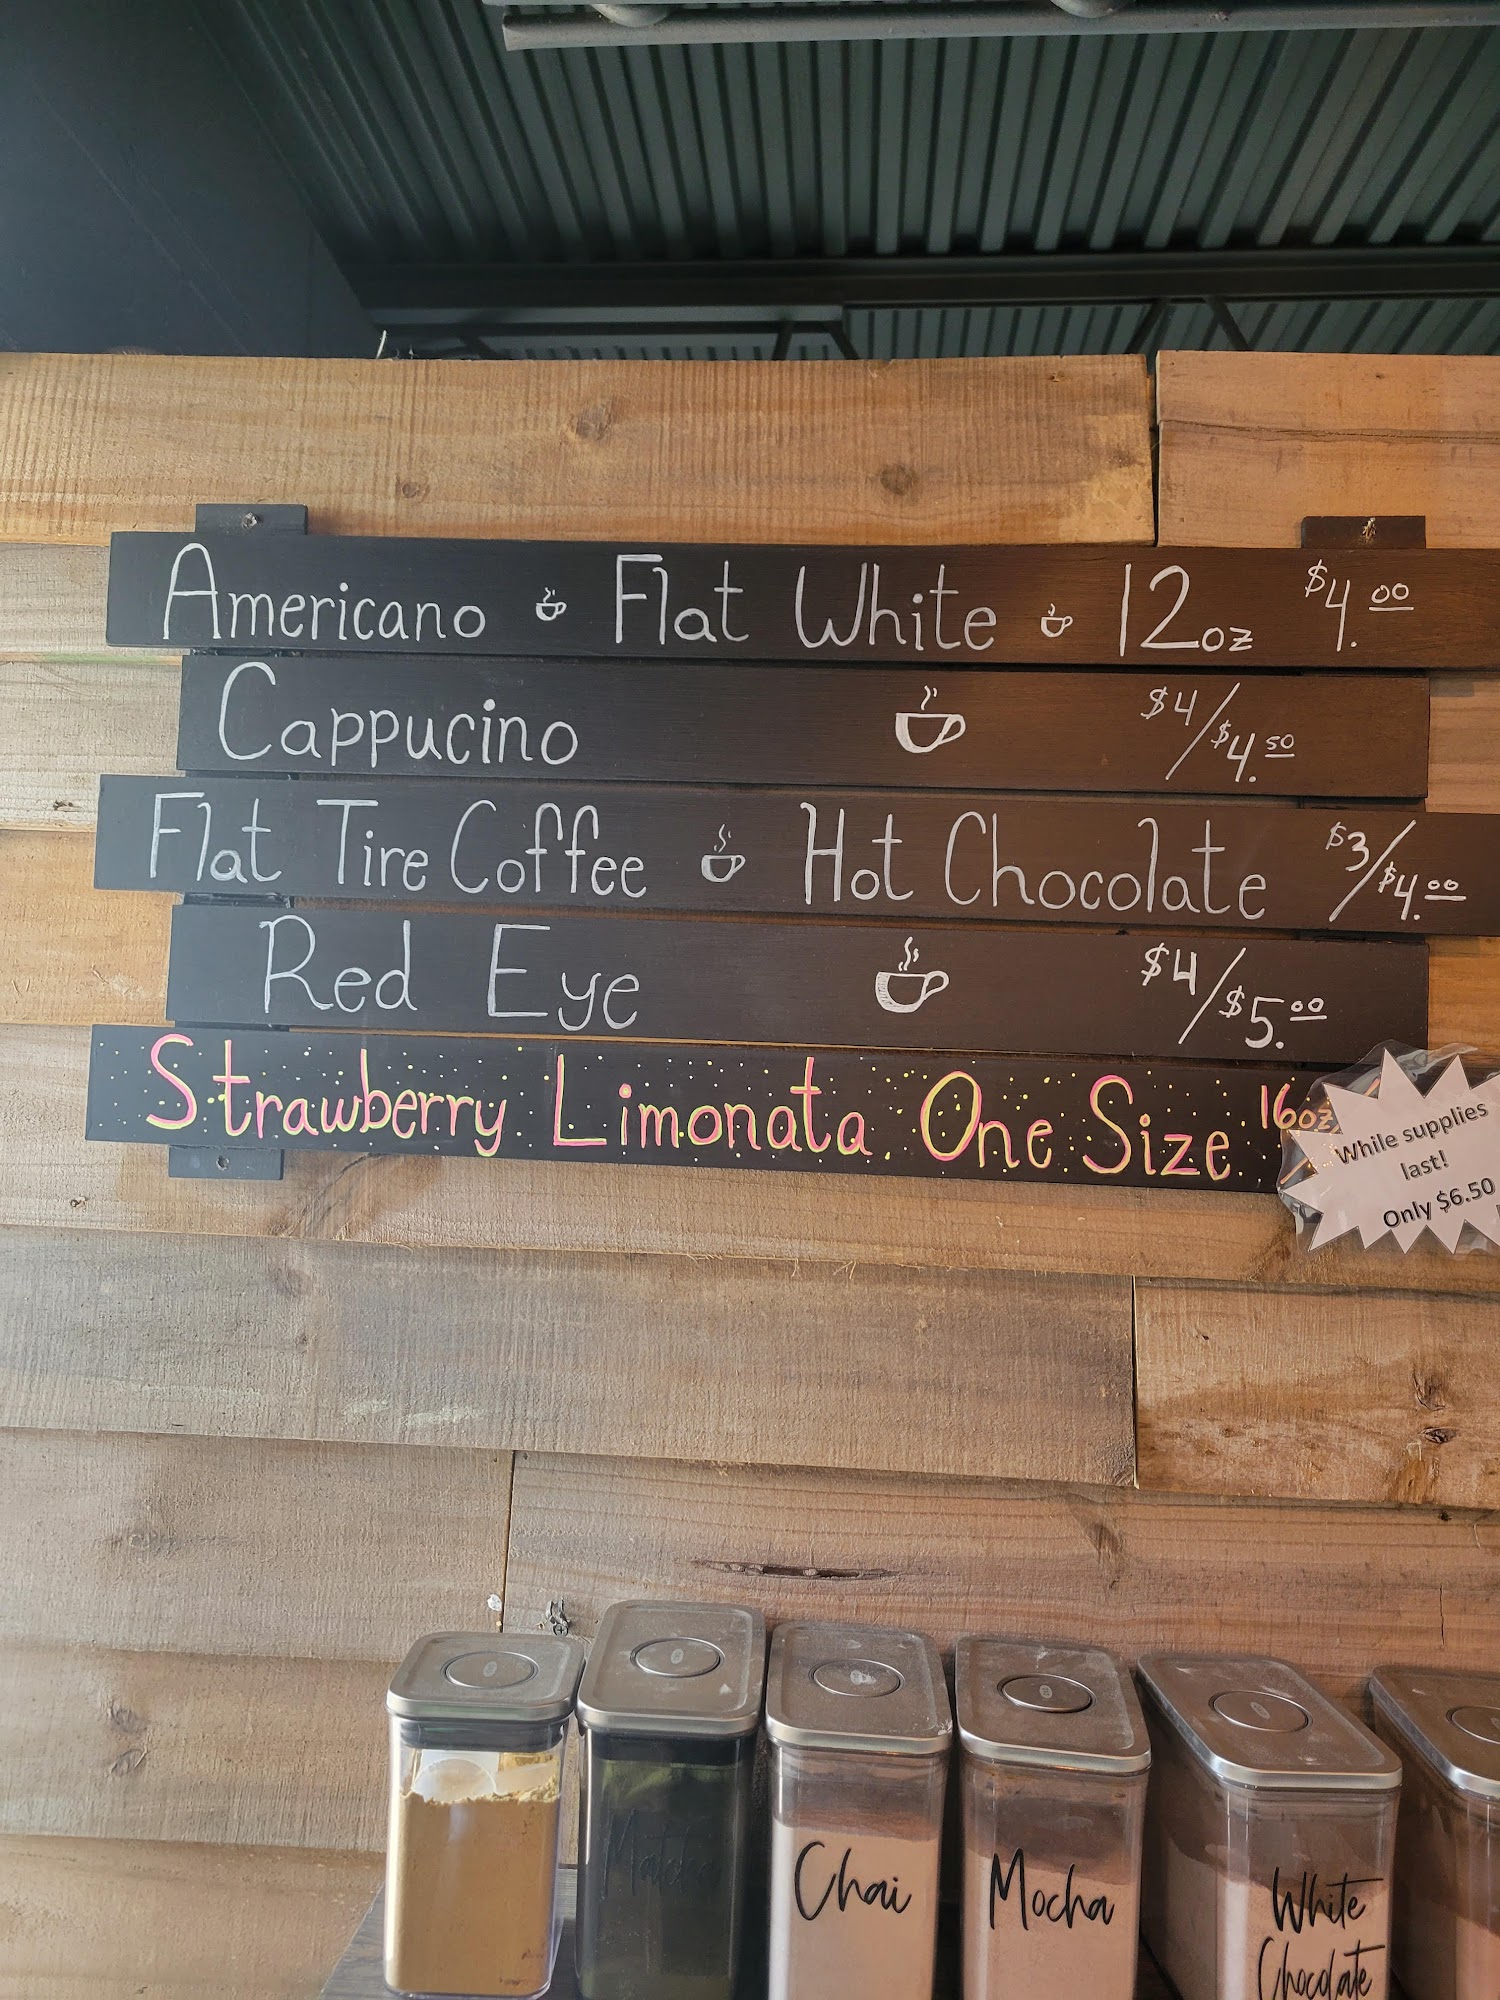 Americano Flat White 12oz $4.00
Cappucino $4/$4.50
Flat Tire Coffee Hot Chocolate $3/$4.00
Red Eye $4/$5.00
Strawberry Limonata One Size 16oz
While supplies
last!
Only $6.50
Matcha
Chai
Mocha
White
Chocolate